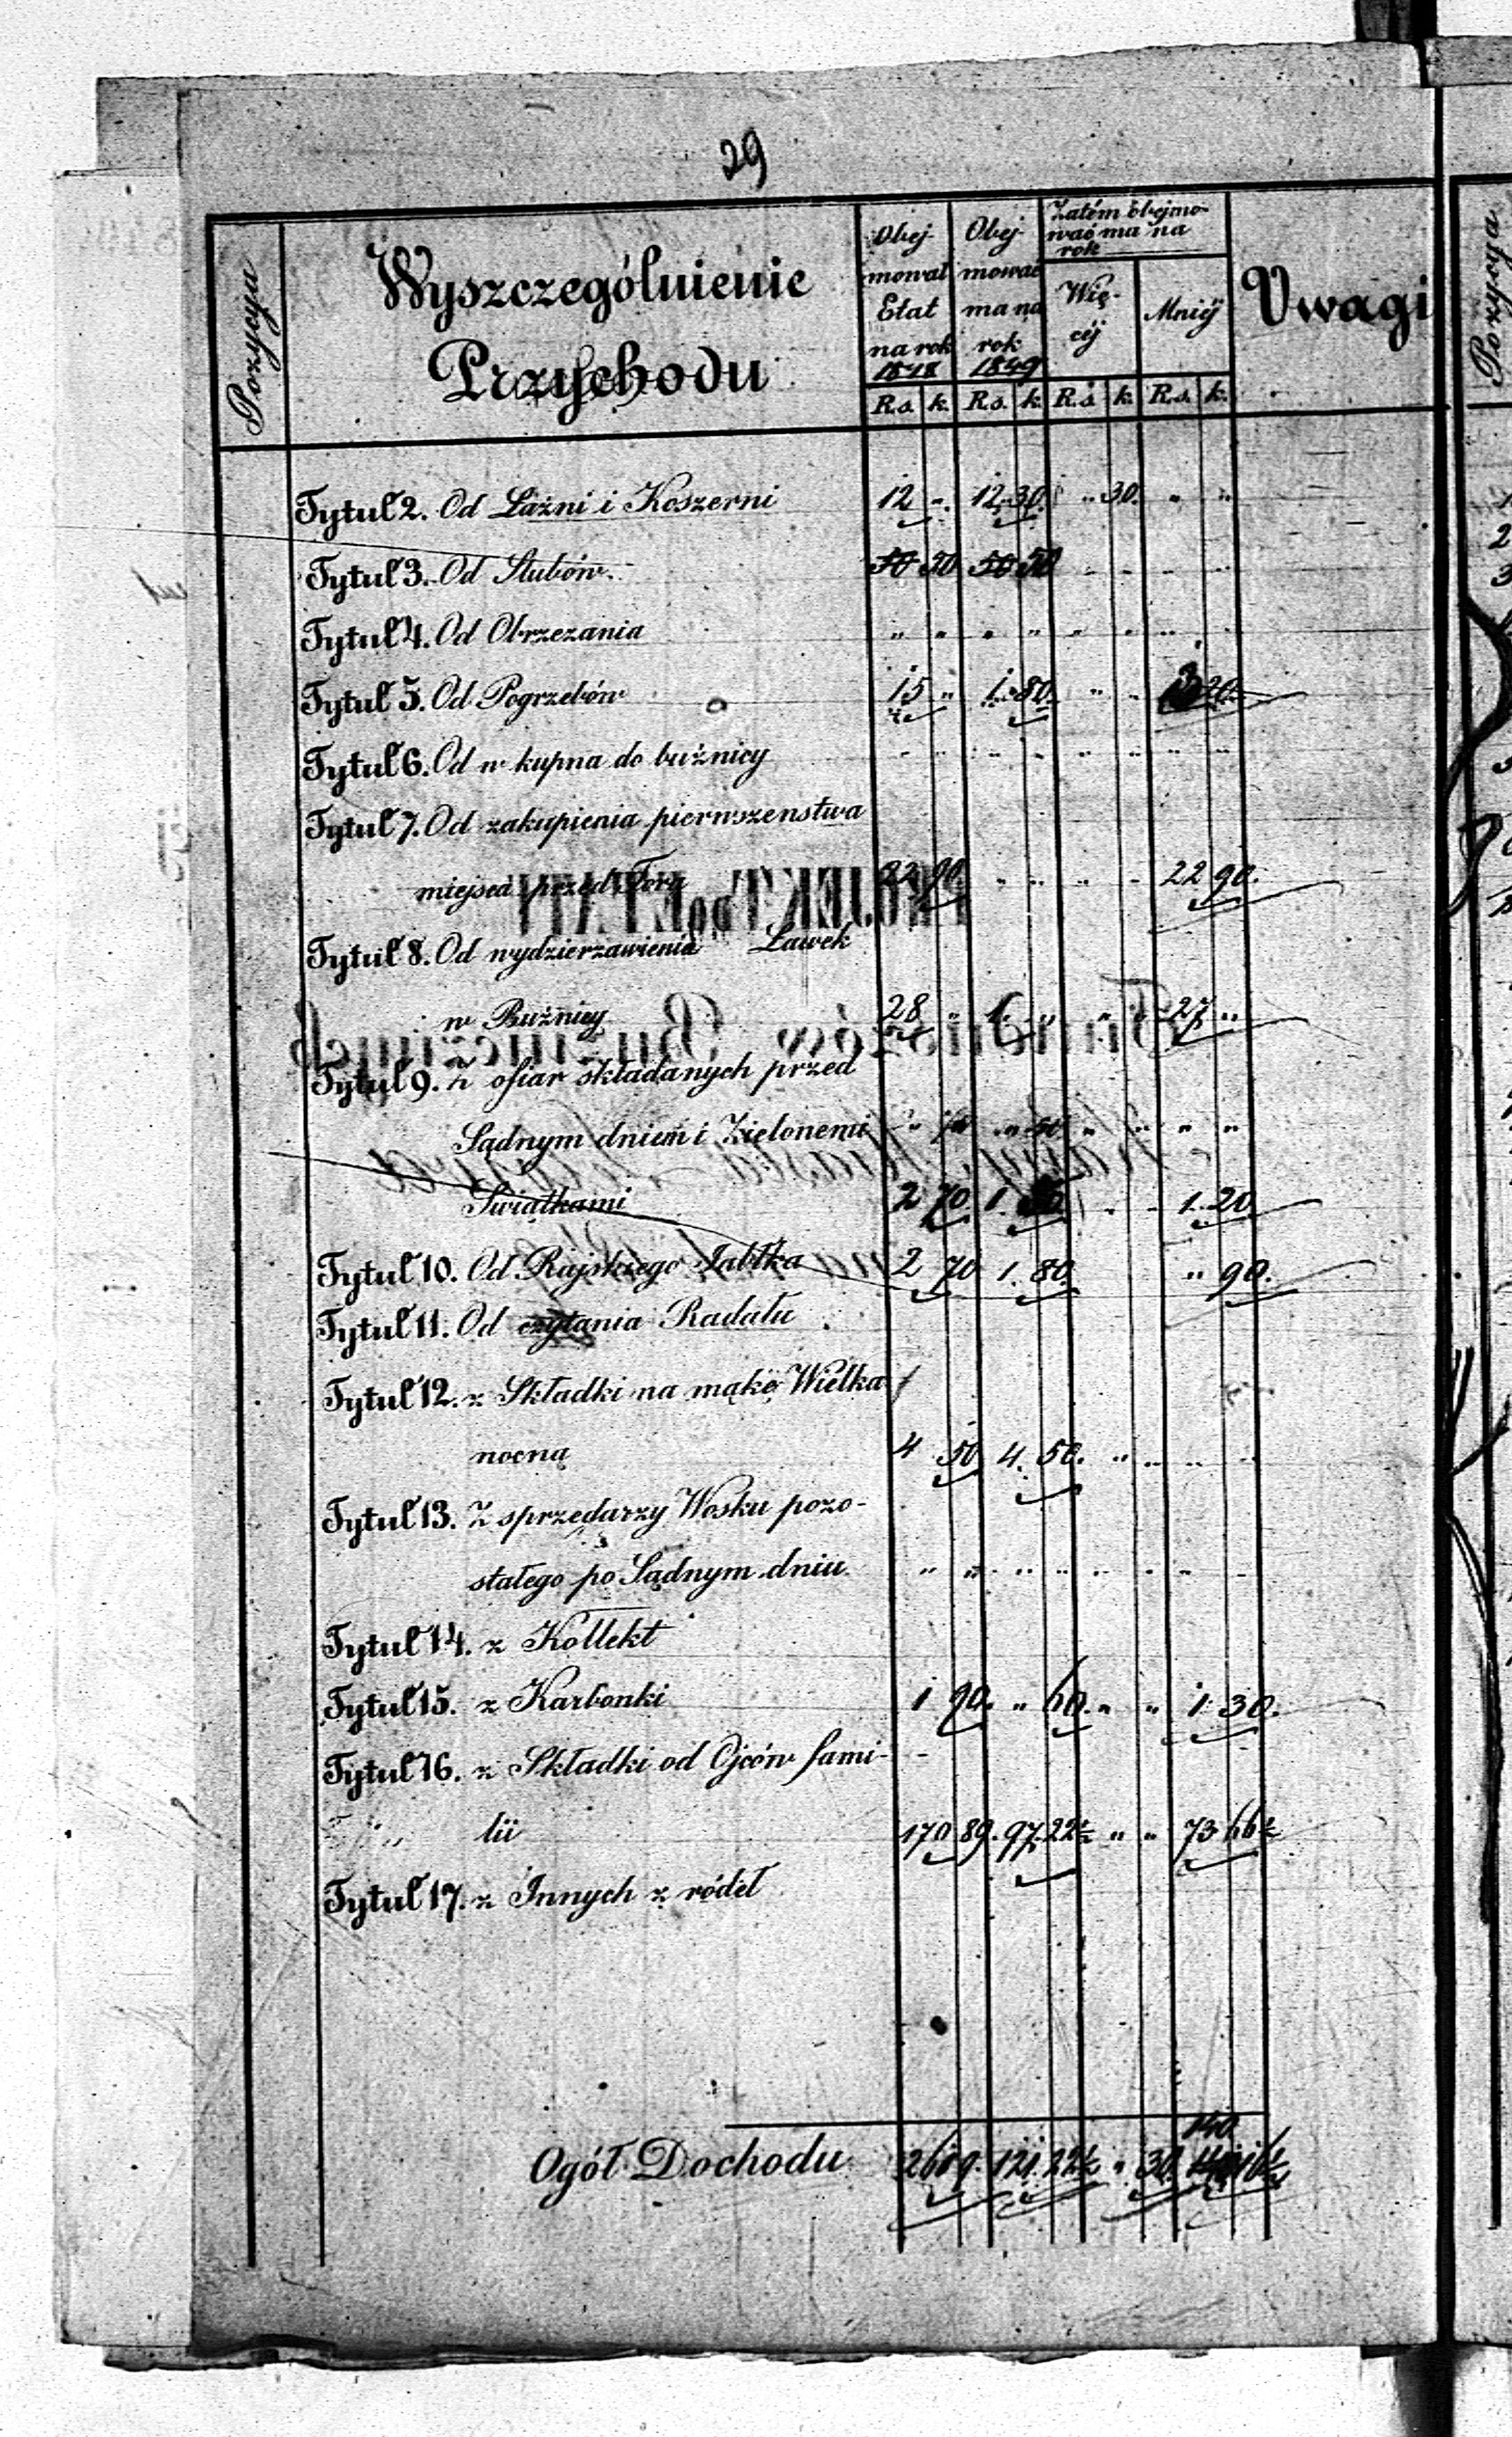 29
Pozycya
Wyszczególnienie
Przychodu
Obej
mował
Etat
na rok
1848
Obej
mować
ma na
rok
1849
Zatém obejmo-
wać ma na
rok
Wię-
céj
Mniéj
Uwagi
R.s. k. R.s. k. R.s. k. R.s. k.
Tytuł 2. Od Łaźni i Koszerni 12 „ 12 30. „ 30. „ „
Tytuł 3. Od Slubów. 50 50 „ „ „ „
Tytuł 4. Od Obrzezania „ „ „ „ „ „ „ „
Tytuł 5. Od Pogrzebów 15 „ 1. 80. „ „ 20.
Tytuł 6. Od w kupna do buźnicy „ „ „ „ „ „ „ „
Tytuł 7. Od zakupienia pierwszenstwa
miejsca przed Torą 22 90. „ „ „ „ 22 90.
Tytuł 8. Od wydzierzawienia Ławek
w Buźnicy 28 „ 1. „ „ „ 27 „
Tytuł 9. Z ofiar składanych przed
Sądnym dniem i Zielonemi
Swiątkami 2 70. 1. „ „ 1. 20
Tytuł 10. Od Rajskiego Jabłka 2 70 1. 80. „ 90.
Tytuł 11. Od czytania Radału
Tytuł 12. z Składki na mąkę Wielka
nocną 4 50 4. 50. „ „ „ „
Tytuł 13. Z sprzedarzy Wosku pozo-
stałego po Sądnym dniu „ „ „ „ „ „ „
Tytuł 14. z Kollekt
Tytuł 15. z Karbonki 1 90. „ 60. „ „ 1. 30.
Tytuł 16. z Składki od Ojców fami-
lii 170 89. 97. 22½ „ „ 73 66½
Tytuł 17. z Innych z ródeł
140
Ogół Dochodu 121. 22½ „ 30.
Pozycya